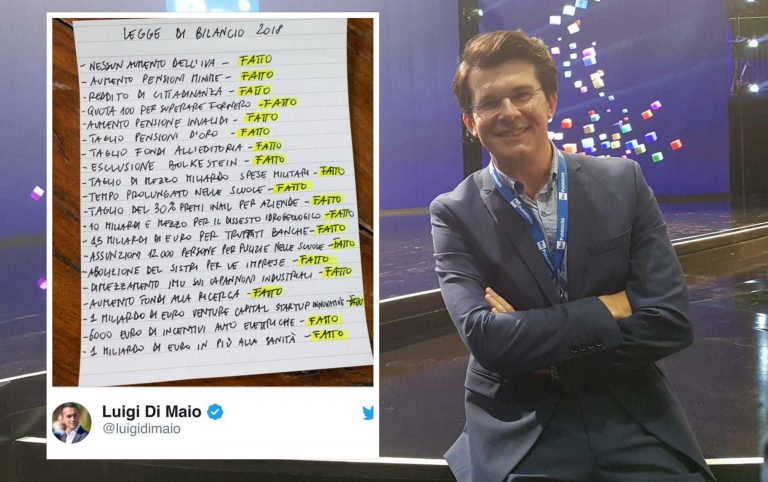 LEGGE DI BILANCIO 2018
- NESSUN AUMENTO DELL'IVA - FATTO
- AUMENTO PENSIONI MINIME - FATTO
- REDDITO DI CITTADINANZA - FATTO
- QUOTA 100 PER SUPERARE FORNERO - FATTO
- AUMENTO PENSIONE INVALIDI - FATTO
- TAGLIO PENSIONI D'ORO - FATTO
- TAGLIO FONDI ALL'EDITORIA - FATTO
- ESCLUSIONE BOLKESTEIN - FATTO
- TAGLIO DI MEZZO MILIARDO SPESE MILITARI - FATTO
- TEMPO PROLUNGATO NELLE SCUOLE - FATTO
- TAGLIO DEL 30% PREMI INAIL PER AZIENDE - FATTO
- 10 MILIARDI E MEZZO PER IL DISSESTO IDROGEOLOGICO - FATTO
- 1,5 MILIARDI DI EURO PER TRUFFATI BANCHE - FATTO
- ASSUNZIONI 12.000 PERSONE PER PULIZIE NELLE SCUOLE - FATTO
- ABOLIZIONE DEL SISTRI PER LE IMPRESE - FATTO
- DIMEZZAMENTO IMU SUI CAPANNONI INDUSTRIALI - FATTO
- AUMENTO FONDI ALLA RICERCA - FATTO
- 1 MILIARDO DI EURO VENTURE CAPITAL STARTUP INNOVATIVE - FATTO
- 6000 EURO DI INCENTIVI AUTO ELETTRICHE - FATTO
- 1 MILIARDO DI EURO IN PIÙ ALLA SANITÀ - FATTO
Luigi Di Maio
@luigidimaio
Rai Pubblicità